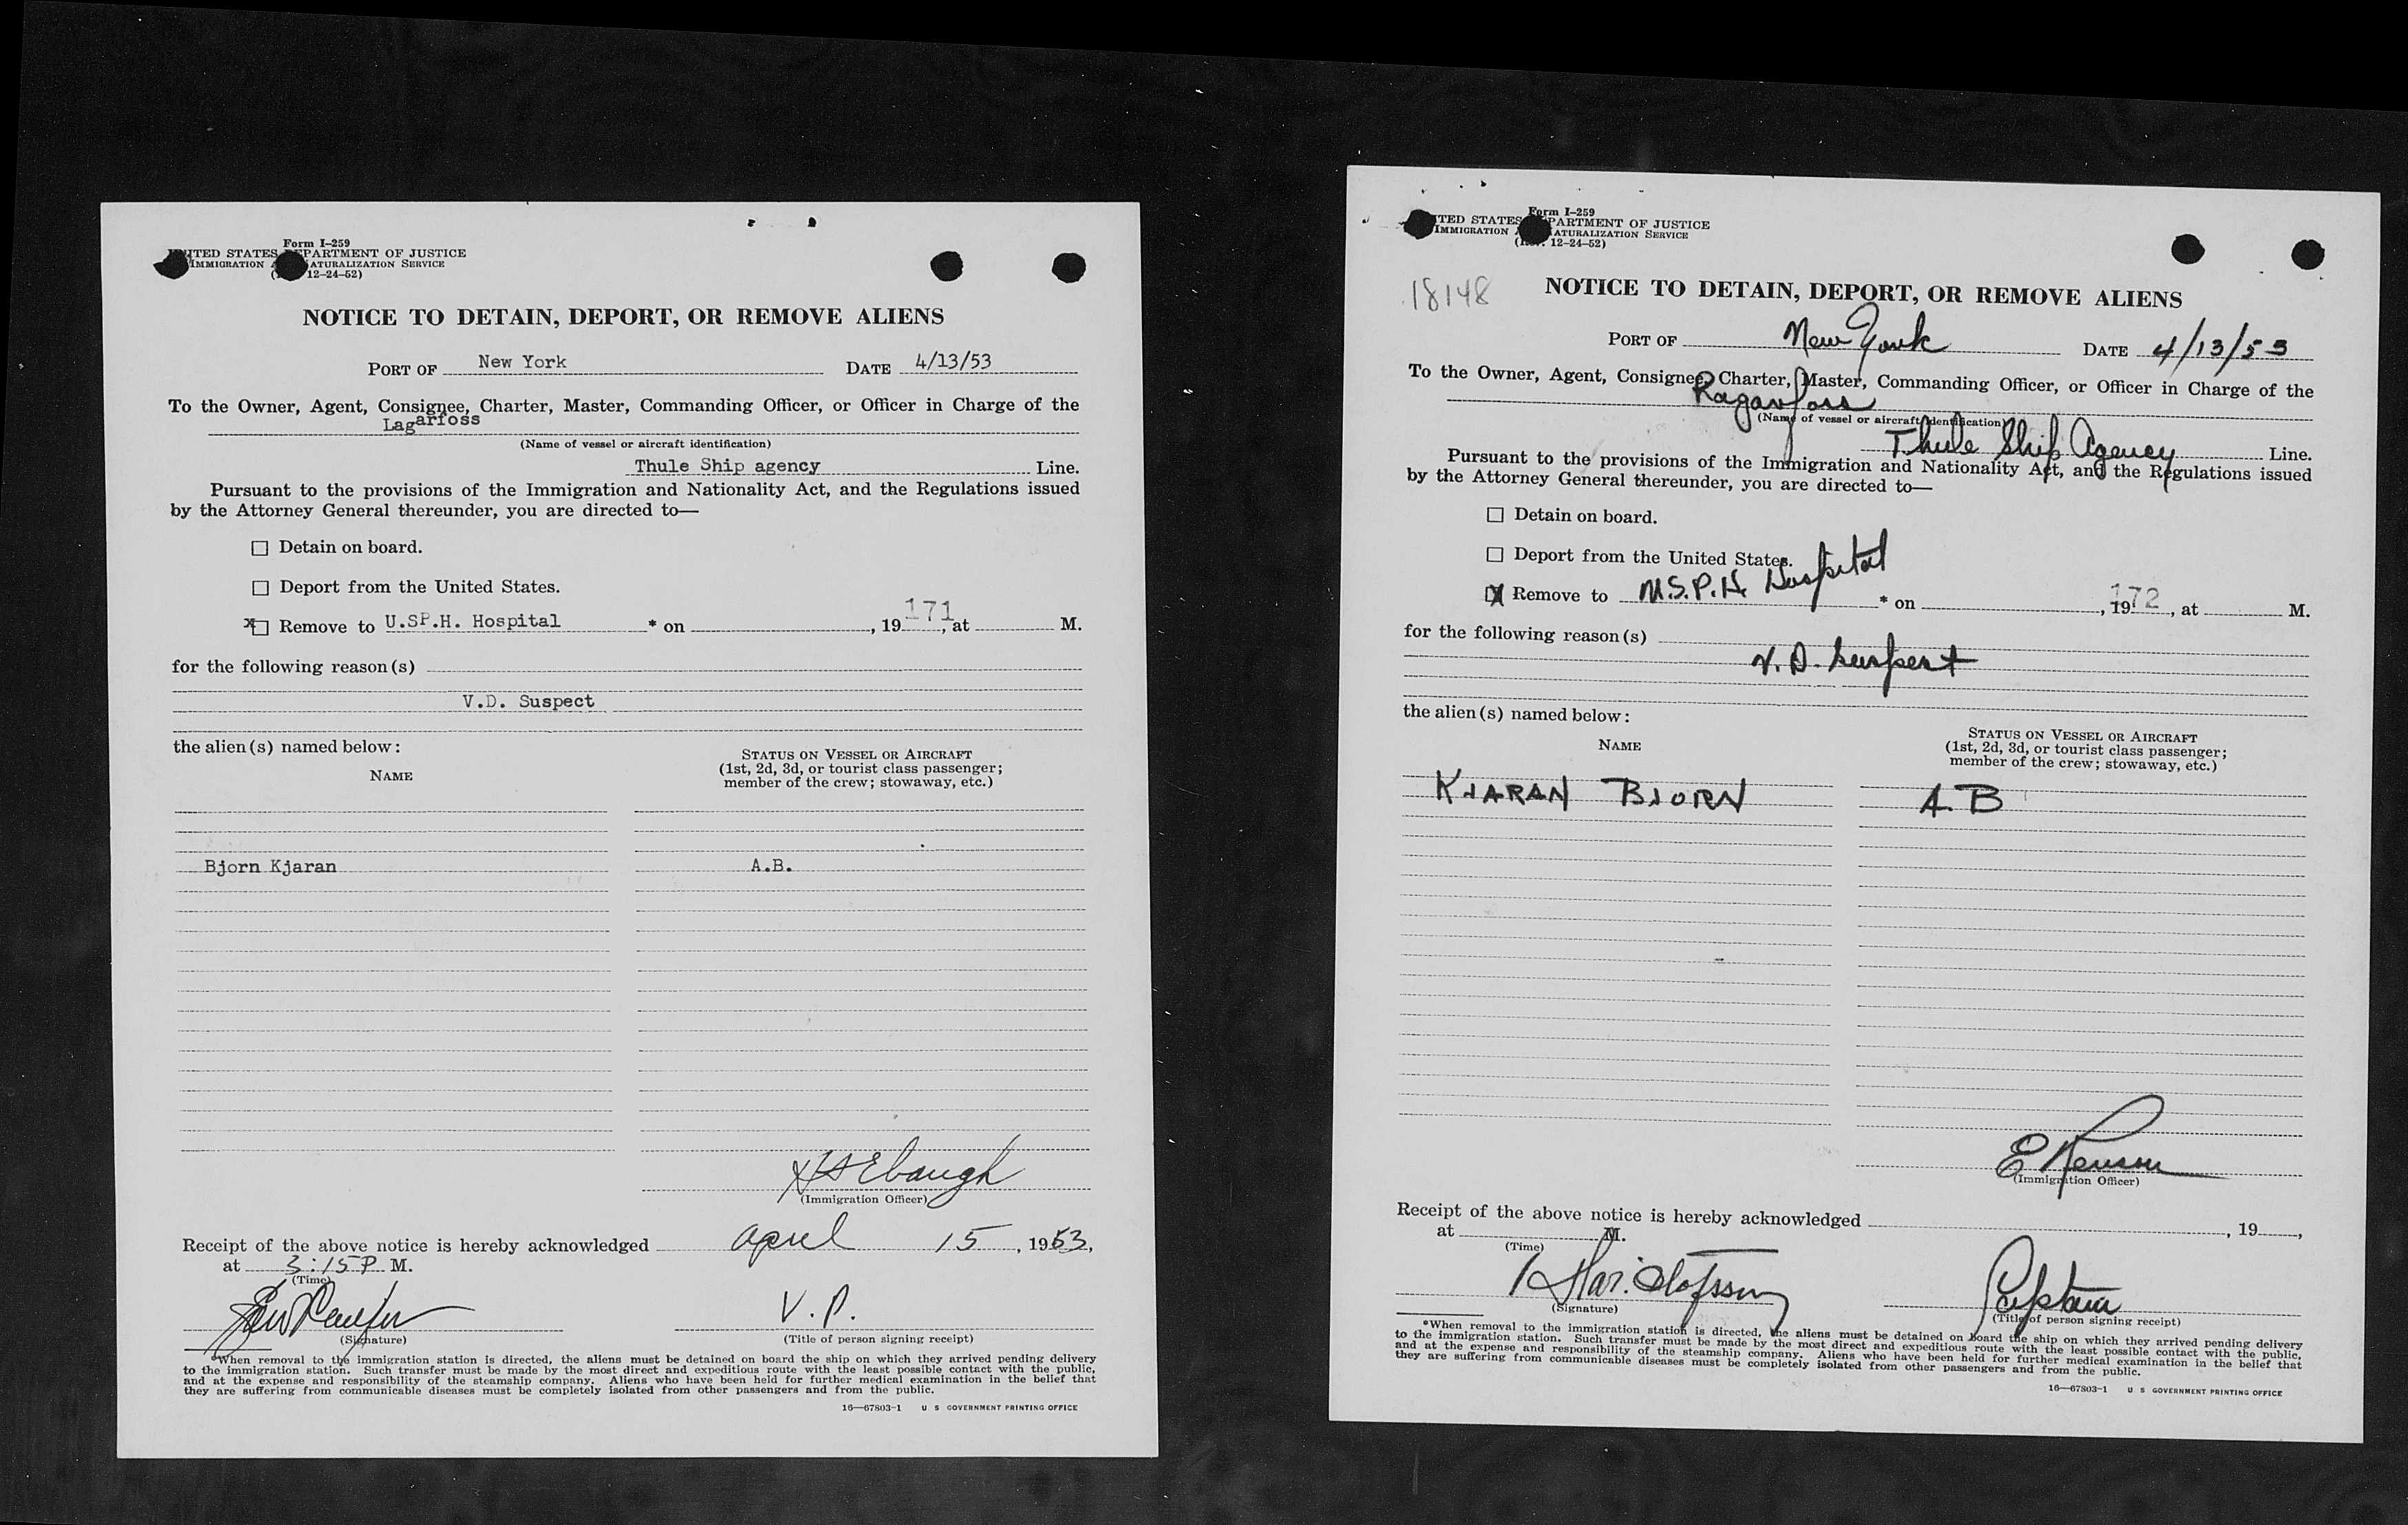 Form I-259
ITED STATES PARTMENT OF JUSTICE
IMMIGRATION A ATURALIZATION SERVICE
( 12-24-52)
NOTICE TO DETAIN, DEPORT, OR REMOVE ALIENS
PORT OF New York DATE 4/13/53
To the Owner, Agent, Consignee, Charter, Master, Commanding Officer, or Officer in Charge of the
Lagarfoss
(Name of vessel or aircraft identification)
Thule Ship agency Line.
Pursuant to the provisions of the Immigration and Nationality Act, and the Regulations issued
by the Attorney General thereunder, you are directed to—
☐ Detain on board.
☐ Deport from the United States.
x☐ Remove to U.SP.H. Hospital * on , 19 171, at M.
for the following reason(s)
V.D. Suspect
the alien(s) named below:
NAME
STATUS ON VESSEL OR AIRCRAFT
(1st, 2d, 3d, or tourist class passenger;
member of the crew; stowaway, etc.)
Bjorn Kjaran A.B.
Ebaugh
(Immigration Officer)
Receipt of the above notice is hereby acknowledged April 15, 1953,
at 3:15 P M.
(Time)
V.P.
(Signature) (Title of person signing receipt)
*When removal to the immigration station is directed, the aliens must be detained on board the ship on which they arrived pending delivery
to the immigration station. Such transfer must be made by the most direct and expeditious route with the least possible contact with the public,
and at the expense and responsibility of the steamship company. Aliens who have been held for further medical examination in the belief that
they are suffering from communicable diseases must be completely isolated from other passengers and from the public.
16—67803-1 U S GOVERNMENT PRINTING OFFICE
Form I-259
ITED STATES PARTMENT OF JUSTICE
IMMIGRATION A ATURALIZATION SERVICE
( 12-24-52)
18148
NOTICE TO DETAIN, DEPORT, OR REMOVE ALIENS
PORT OF New York DATE 4/13/53
To the Owner, Agent, Consignee, Charter, Master, Commanding Officer, or Officer in Charge of the
Ragarfoss
(Name of vessel or aircraft identification)
Thule Ship Agency Line.
Pursuant to the provisions of the Immigration and Nationality Act, and the Regulations issued
by the Attorney General thereunder, you are directed to—
☐ Detain on board.
☐ Deport from the United States.
☒ Remove to U.S.P.H. Hospital * on , 19 172, at M.
for the following reason(s)
V.D. Suspect
the alien(s) named below:
NAME
STATUS ON VESSEL OR AIRCRAFT
(1st, 2d, 3d, or tourist class passenger;
member of the crew; stowaway, etc.)
KJARAN BJORN A.B
E
(Immigration Officer)
Receipt of the above notice is hereby acknowledged , 19 ,
at M.
(Time)
Olafsson Captain
(Signature) (Title of person signing receipt)
*When removal to the immigration station is directed, the aliens must be detained on board the ship on which they arrived pending delivery
to the immigration station. Such transfer must be made by the most direct and expeditious route with the least possible contact with the public,
and at the expense and responsibility of the steamship company. Aliens who have been held for further medical examination in the belief that
they are suffering from communicable diseases must be completely isolated from other passengers and from the public.
16—67803-1 U S GOVERNMENT PRINTING OFFICE